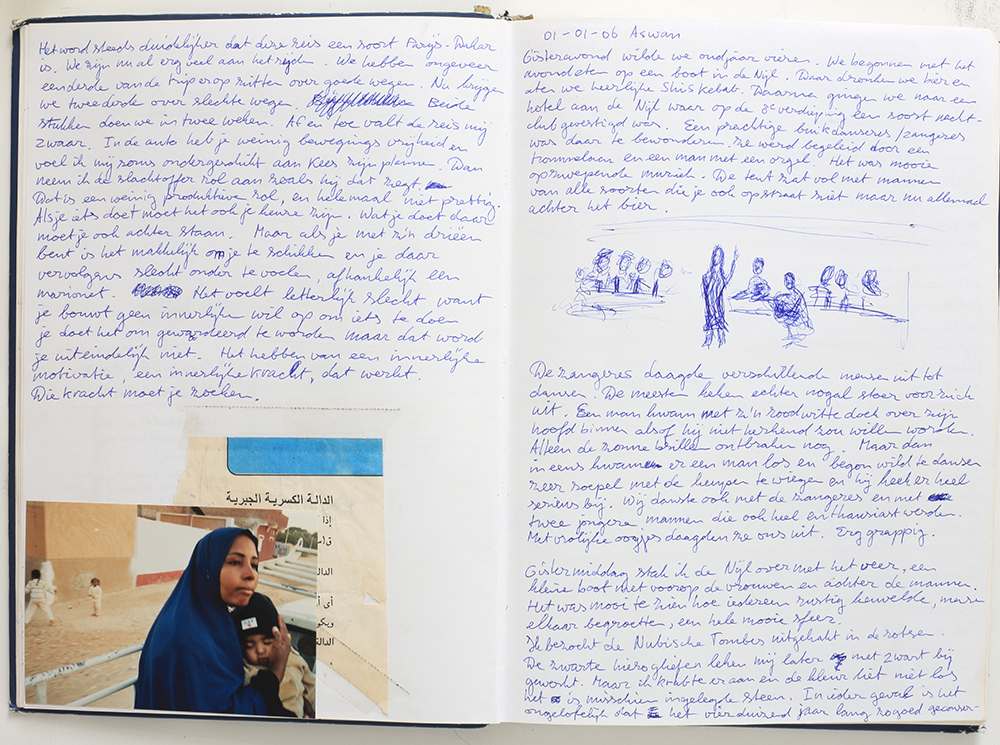 Het word steeds duidelijker dat deze reis een soort Parijs-Dakar
is. We zijn nu al erg veel aan het rijden. We hebben ongeveer
eenderde van de trip erop zitten over goede wegen. Nu krijgen
we tweederde over slechte wegen. Beide
stukken doen we in twee weken. Af en toe valt de reis mij
zwaar. In de auto heb je weinig bewegings vrijheid en
voel ik mij soms ondergeschikt aan Kees zijn plannen. Dan
neem ik de slachtoffer rol aan zoals hij dat zegt.
Dat is een weinig produktieve rol, en helemaal niet prettig.
Als je iets doet moet het ook je keuze zijn. Wat je doet daar
moet je ook achter staan. Maar als je met z'n drieën
bent is het makkelijk om je te schikken en je daar
vervolgens slecht onder te voelen, afhankelijk een
marionet. Het voelt letterlijk slecht want
je bouwt geen innerlijke wil op om iets te doen
je doet het om gewaardeerd te worden maar dat word
je uiteindelijk niet. Het hebben van een innerlijke
motivatie, een innerlijke kracht, dat werkt.
Die kracht moet je zoeken.
الدالة الكسرية الجبرية
إذا
أى
ويكو
الدالة
01-01-06 Aswan
Gisteravond wilde we oudjaar vieren. We begonnen met het
avondeten op een boot in de Nijl. Daar dronken we bier en
aten we heerlijke Shiskebab. Daarna gingen we naar een
hotel aan de Nijl waar op de 8e verdieping een soort nacht-
club gevestigd was. Een prachtige buikdanseres/zangeres
was daar te bewonderen. ze werd begeleid door een
trommelaar en een man met een orgel. Het was mooie
opzwepende muziek. De tent zat vol met mannen
van alle soorten die je ook op straat ziet maar nu allemaal
achter het bier.
De zangeres daagde verschillende mensen uit tot
dansen. De meesten keken echter nogal stoer voor zich
uit. Een man kwam met z'n roodwitte doek over zijn
hoofd binnen alsof hij niet herkend zou willen worden.
Alleen de zonnebrillen ontbraken nog. Maar dan
ineens kwam er een man los en begon wild te dansen
zeer soepel met de heupen te wiegen en hij keek er heel
serieus bij. Wij danste ook met de zangeres en met
twee jongere mannen die ook heel enthausiast werden.
Met vrolijke oogjes daagden ze ons uit. Erg grappig.
Gistermiddag stak ik de Nijl over met het veer, een
kleine boot met voorop de vrouwen en achter de mannen.
Het was mooi te zien hoe iedereen rustig keuvelde,
elkaar begroetten, een hele mooie sfeer.
Ik bezocht de Nubische Tombes uitgehakt in de rotsen.
De zwarte hierogliefen leken mij later met zwart bij
gewerkt. Maar ik krabte er aan en de kleur liet niet los
het is misschien ingelegde steen. In ieder geval is het
ongelofelijk dat het vierduizend jaar lang zo goed geconser-